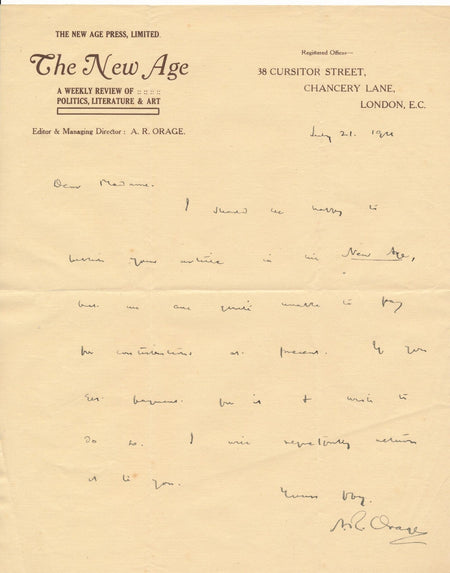 THE NEW AGE PRESS, LIMITED.
The New Age
A WEEKLY REVIEW OF
POLITICS, LITERATURE & ART
Editor & Managing Director: A. R. ORAGE.
Registered Offices—
38 CURSITOR STREET,
CHANCERY LANE,
LONDON, E.C.
July 21. 1911
Dear Madame.
I should be happy to
publish your article in the New Age,
but we are quite unable to pay
for contributions at present. If you
get payment for it & wish to
do so. I will regretfully return
it to you.
Yours ffy.
A. R. Orage